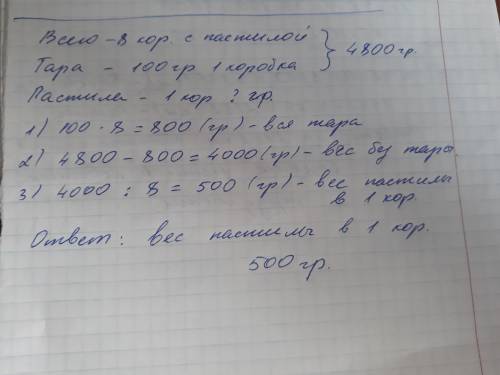 Всего – 8 кор. с пастилой } 4800 гр.
Тара – 100 гр 1 коробка
Пастила – 1 кор ? гр.
1) 100 · 8 = 800 (гр) – вся тара
2) 4800 – 800 = 4000 (гр) – вес без тары
3) 4000 : 8 = 500 (гр) – вес пастилы
в 1 кор.
Ответ: вес пастилы в 1 кор.
500 гр.